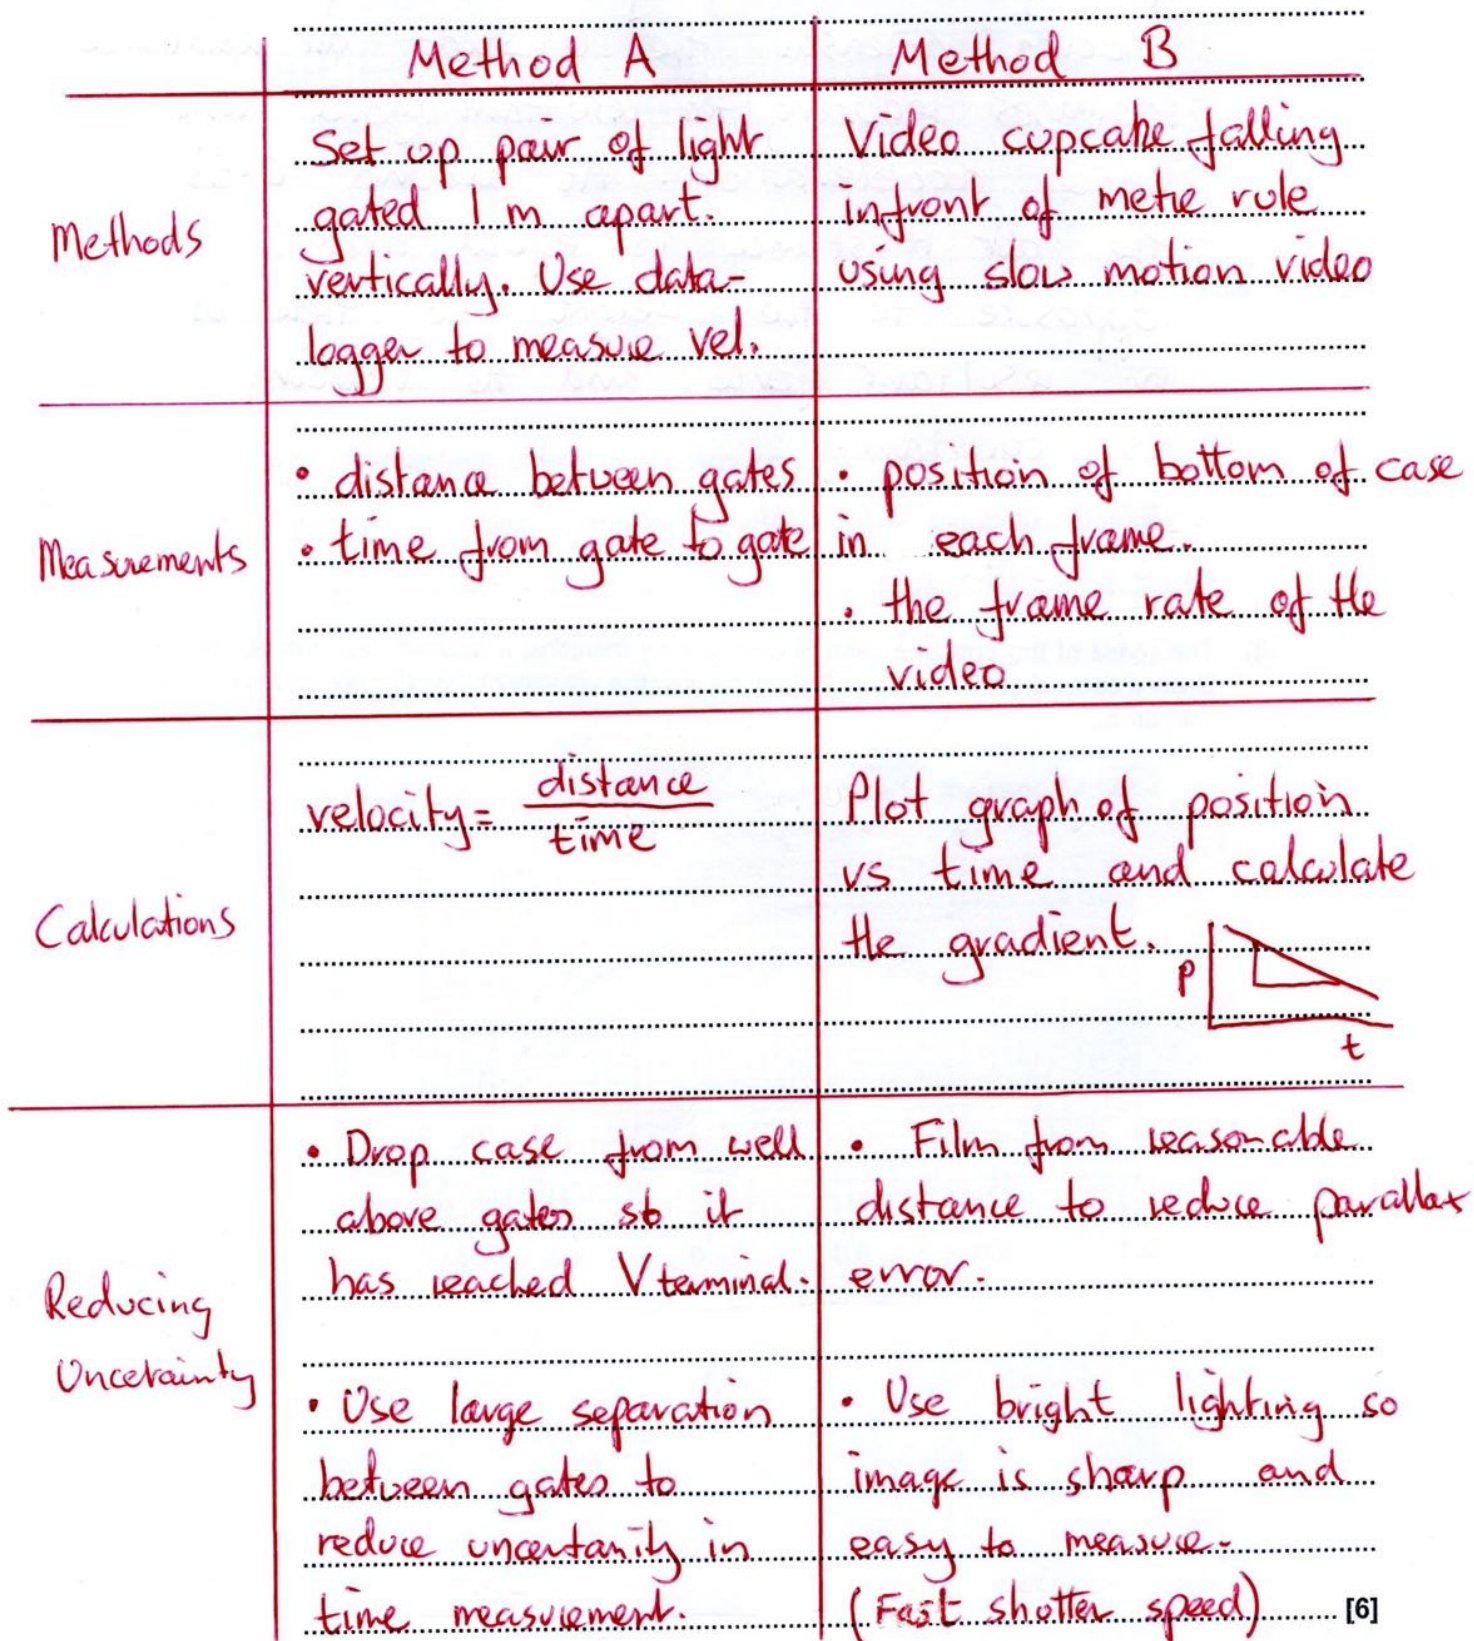 Method A
Method B
Methods
Set up pair of light
gated 1 m apart.
vertically. Use data-
logger to measure vel.
Video cupcake falling
infront of metre rule
using slow motion video
Measurements
• distance between gates
• time from gate to gate
• position of bottom of case
in each frame.
• the frame rate of the
video
Calculations
velocity = distance
time
Plot graph of position
vs time and calculate
the gradient.
p
t
Reducing
Uncertainty
• Drop case from well
above gates so it
has reached V terminal.
• Use large separation
between gates to
reduce uncertanity in
time measurement.
• Film from reasonable
distance to reduce parallax
error.
• Use bright lighting so
image is sharp and
easy to measure.
(Fast shutter speed)
[6]